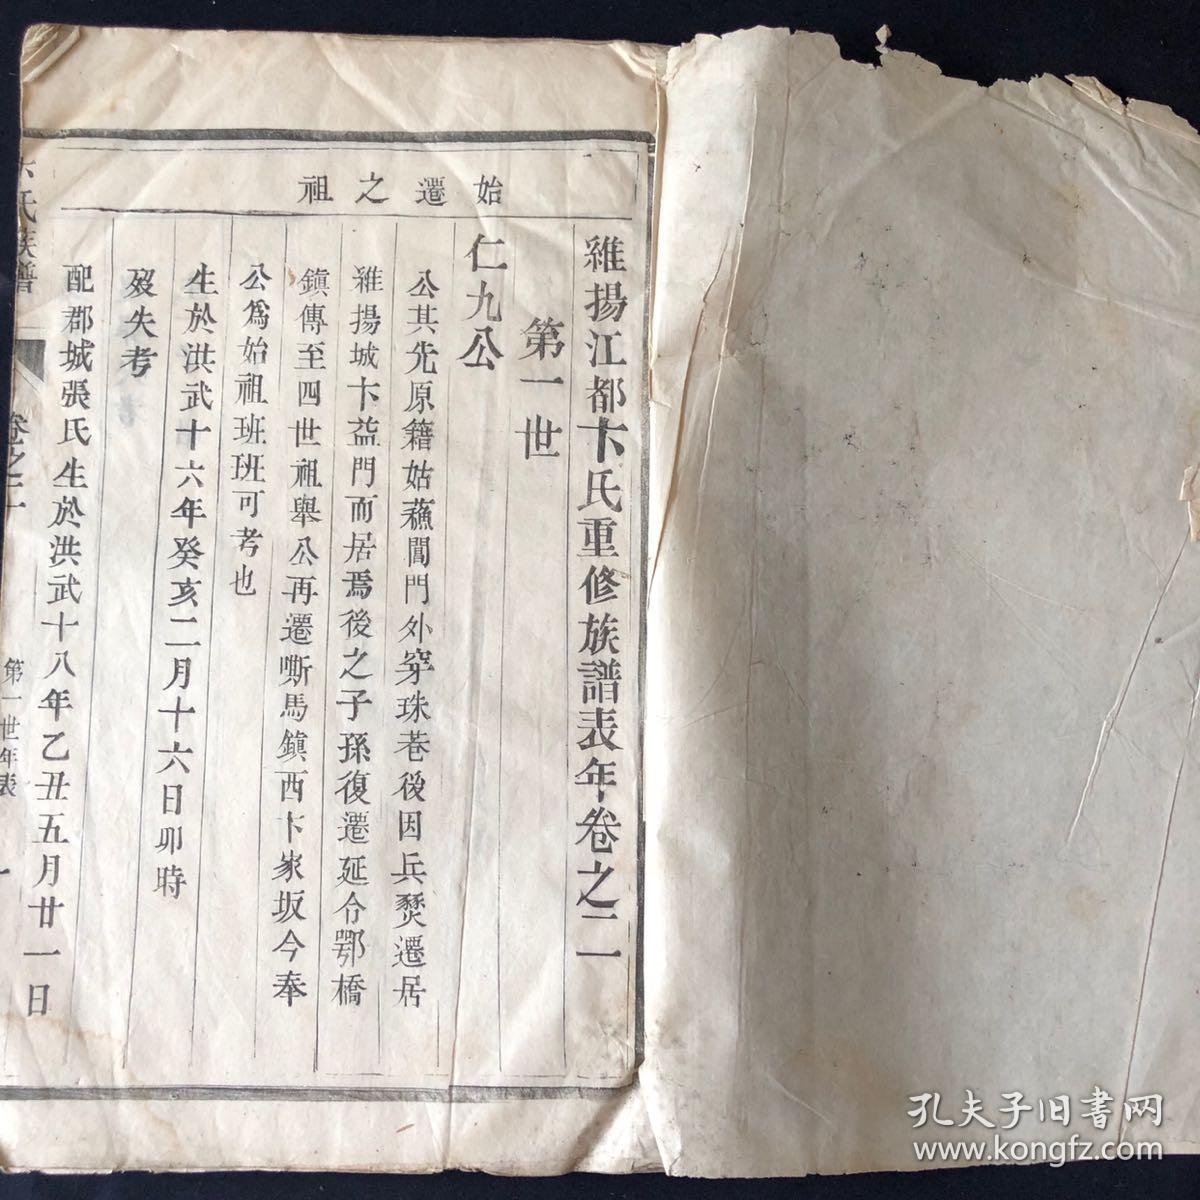 始遷之祖
維揚江都卞氏重修族譜表年卷之二
第一世
仁九公
公其先原籍姑蘇閶門外穿珠巷後因兵燹遷居
維揚城卞益門而居焉後之子孫復遷延令鄂橋
鎮傳至四世祖舉公再遷嘶馬鎮西卞家坂今奉
公爲始祖班班可考也
生於洪武十六年癸亥二月十六日卯時
歿失考
配郡城張氏生於洪武十八年乙丑五月廿一日
卞氏族譜
卷之二
第一世年表
一
孔夫子旧书网
www.kongfz.com